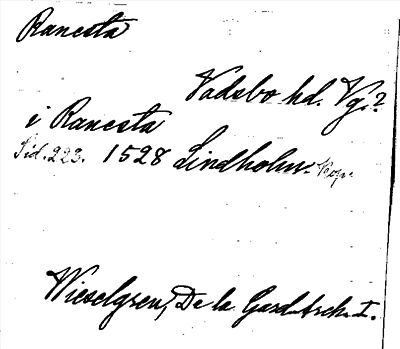 Ranesta
Vadsbo hd. Vg.?
i Ranesta
Sid. 223. 1528 Lindholm. Kop.
Wieselgren, De la Gard. Arch. I.